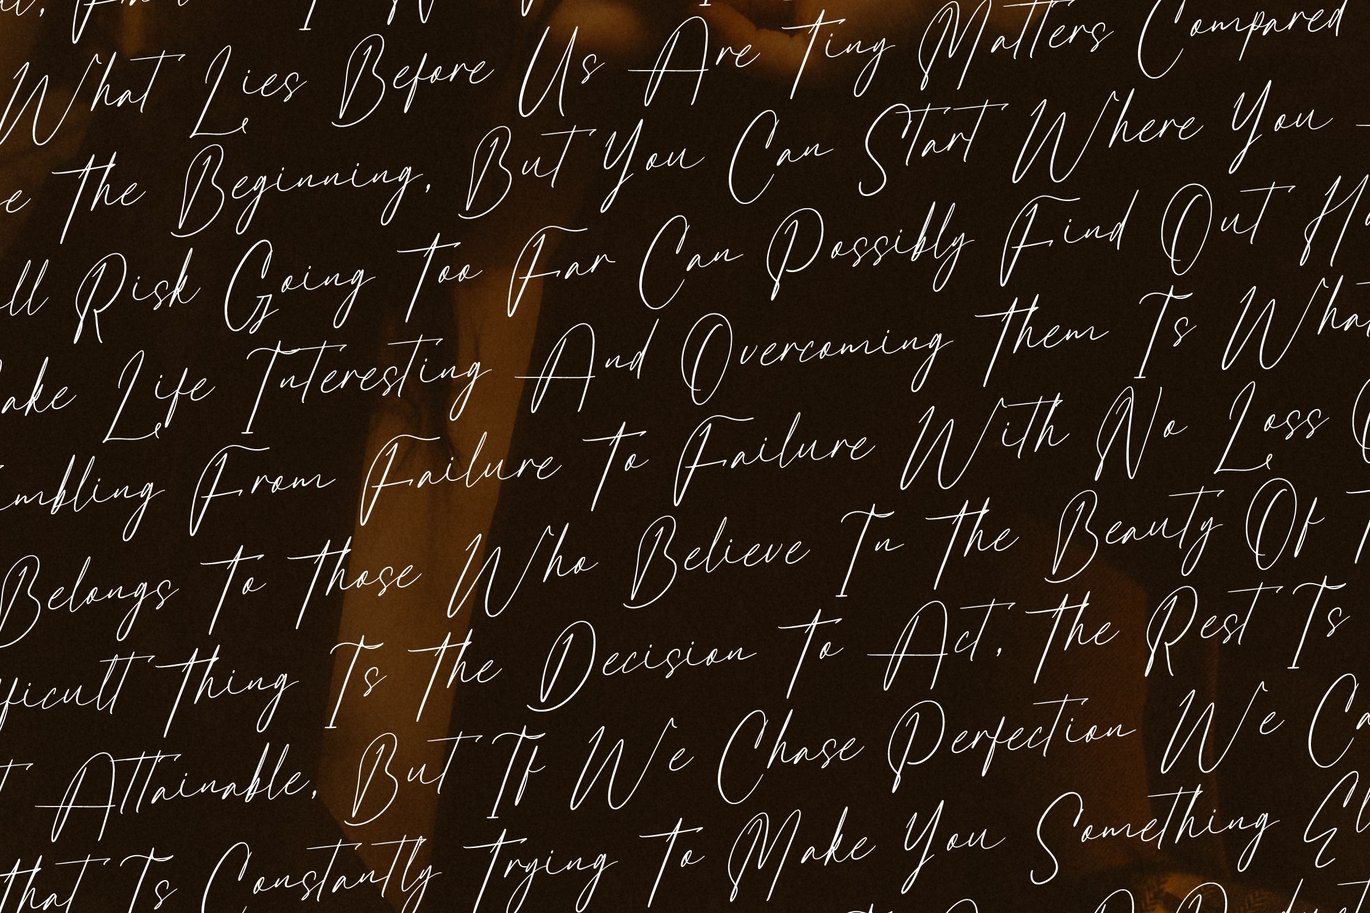 What Lies Before Us Are Tiny Matters Compared
The Beginning, But You Can Start Where You
Risk Going Too Far Can Possibly Find Out
Life Interesting And Overcoming Them Is What
From Failure To Failure With No Loss
Belongs To Those Who Believe In The Beauty Of
Thing Is The Decision To Act, The Rest Is
Attainable, But If We Chase Perfection We
That Is Constantly Trying To Make You Something